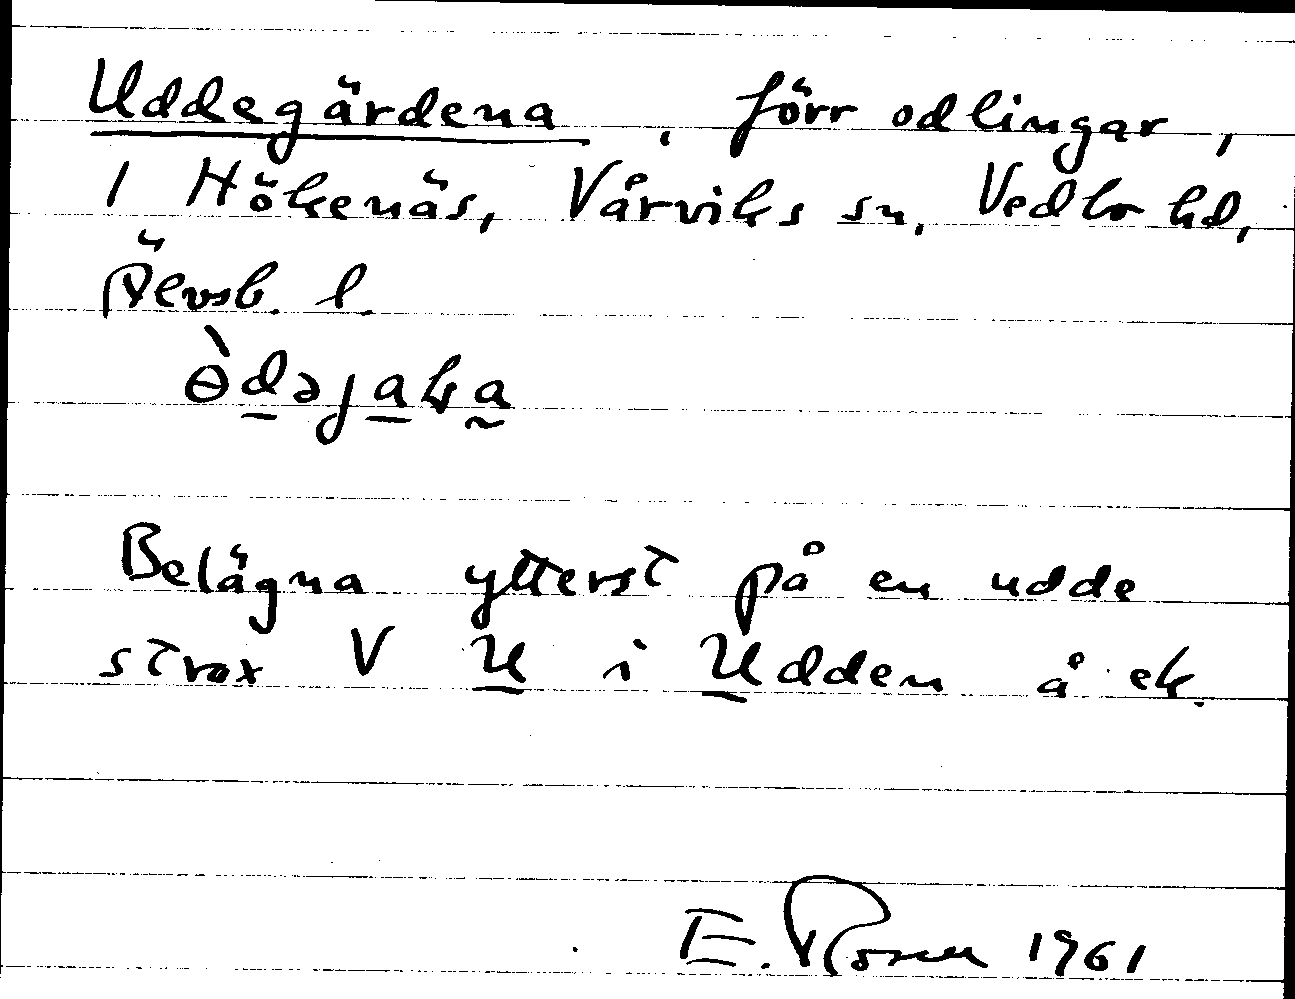 Uddegärdena, förr odlingar,
1 Hökenäs, Vårviks sn, Vedbo hd,
Älvsb. l.
ɵ̀dəjaka
Belägna ytterst på en udde
strax V U i Udden å ek.
E. 1961